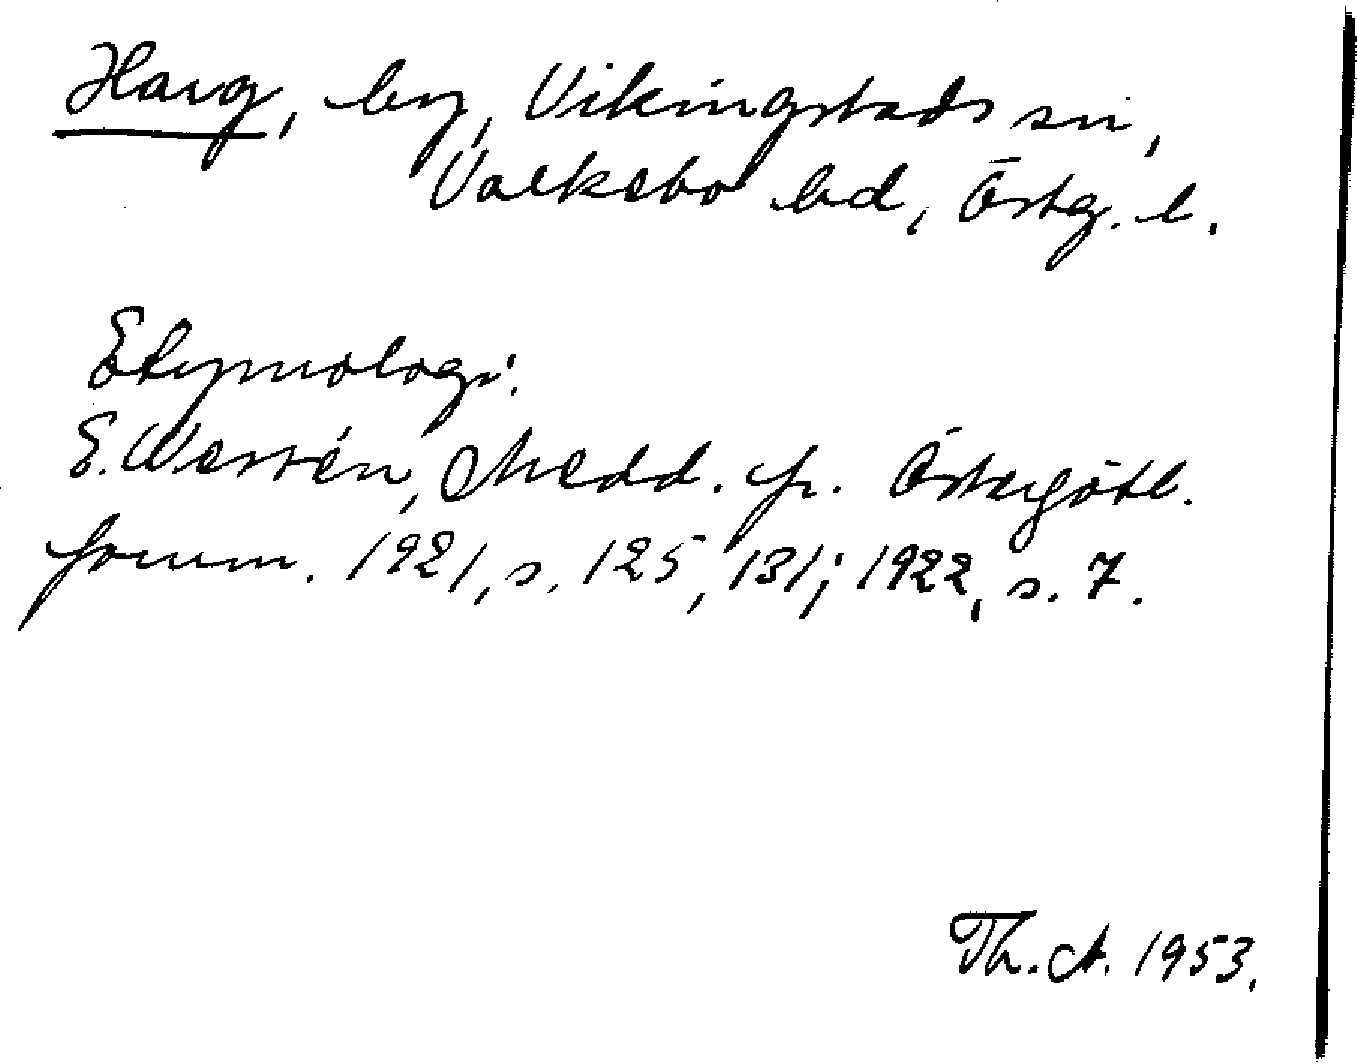 Harg, by, Vikingstads sn,
Valkebo hd, Östg. l.
Etymologi:
E. Wessén, Medd. fr. Östergötl.
fornm. 1921, s. 125, 131; 1922, s. 7.
Th. A. 1953.